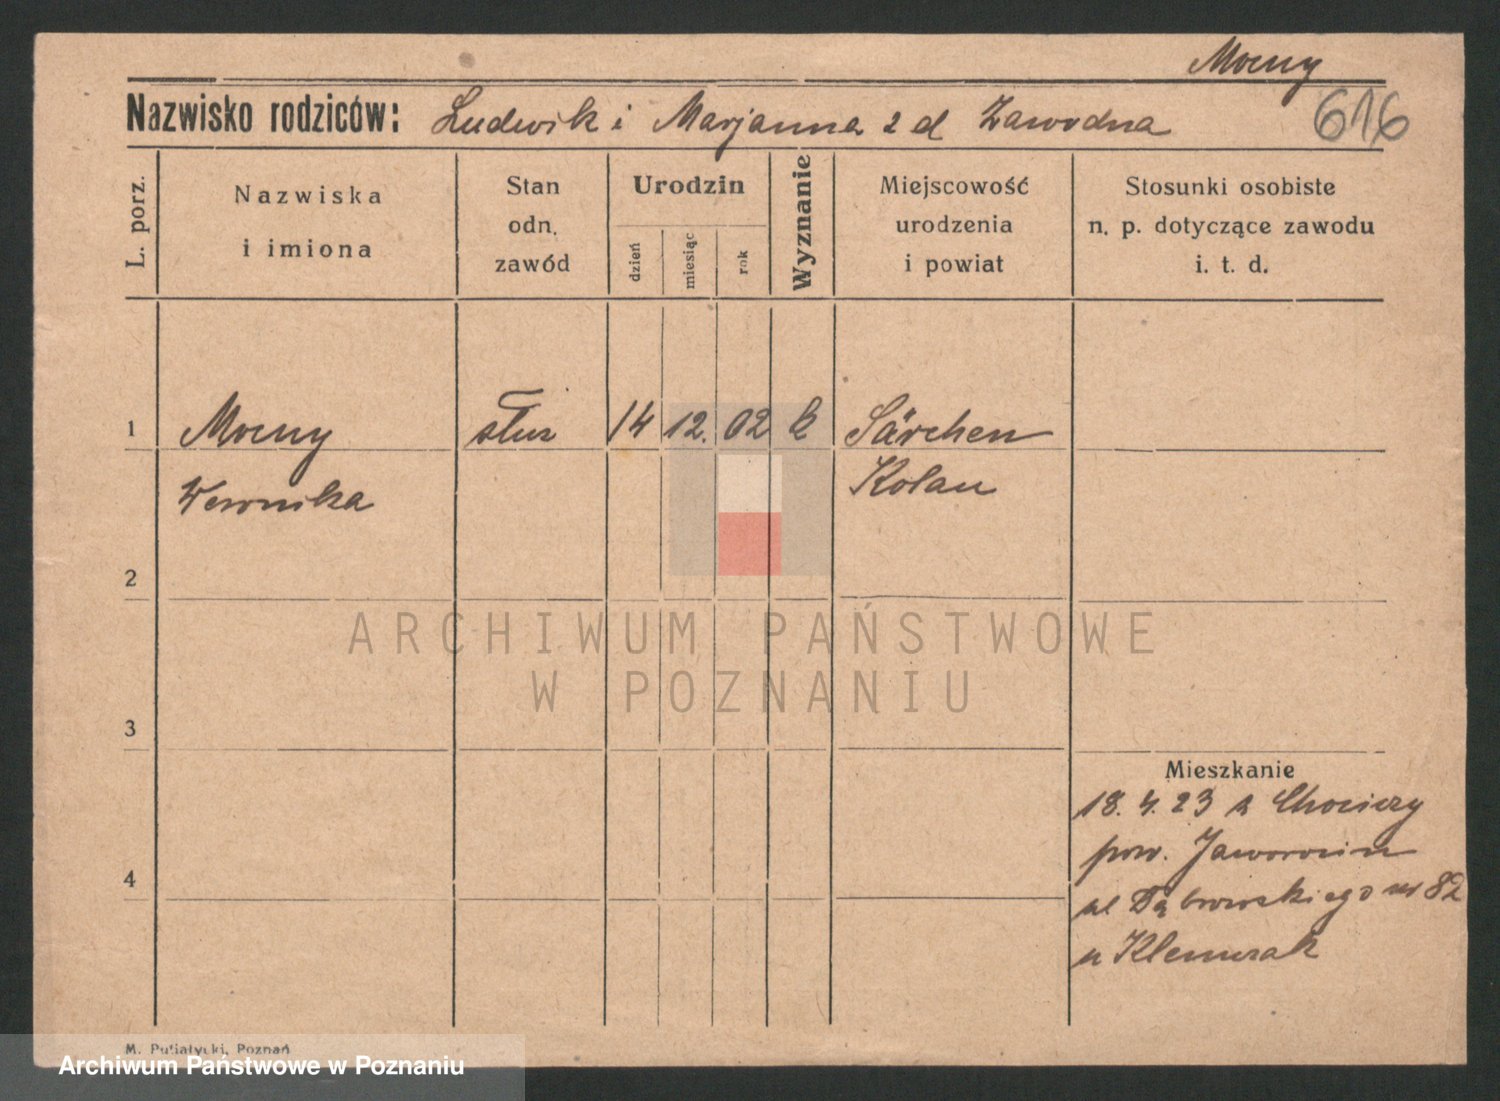 Mocny
616
Nazwisko rodziców: Ludwik i Marjanna z d Zawodna
L. porz.
Nazwiska
i imiona
Stan
odn.
zawód
Urodzin
dzień
miesiąc
rok
Wyznanie
Miejscowość
urodzenia
i powiat
Stosunki osobiste
n. p. dotyczące zawodu
i. t. d.
1 Mocny służ 14 12. 02 k Särchen
Weronika Kolau
2
3
4
Mieszkanie
18. 4. 23 z Chociczy
pow. Jaworocin
ul Dąbrowskiego nr 82
u Klemczak
ARCHIWUM PAŃSTWOWE
W POZNANIU
M. Putiatycki, Poznań
Archiwum Państwowe w Poznaniu